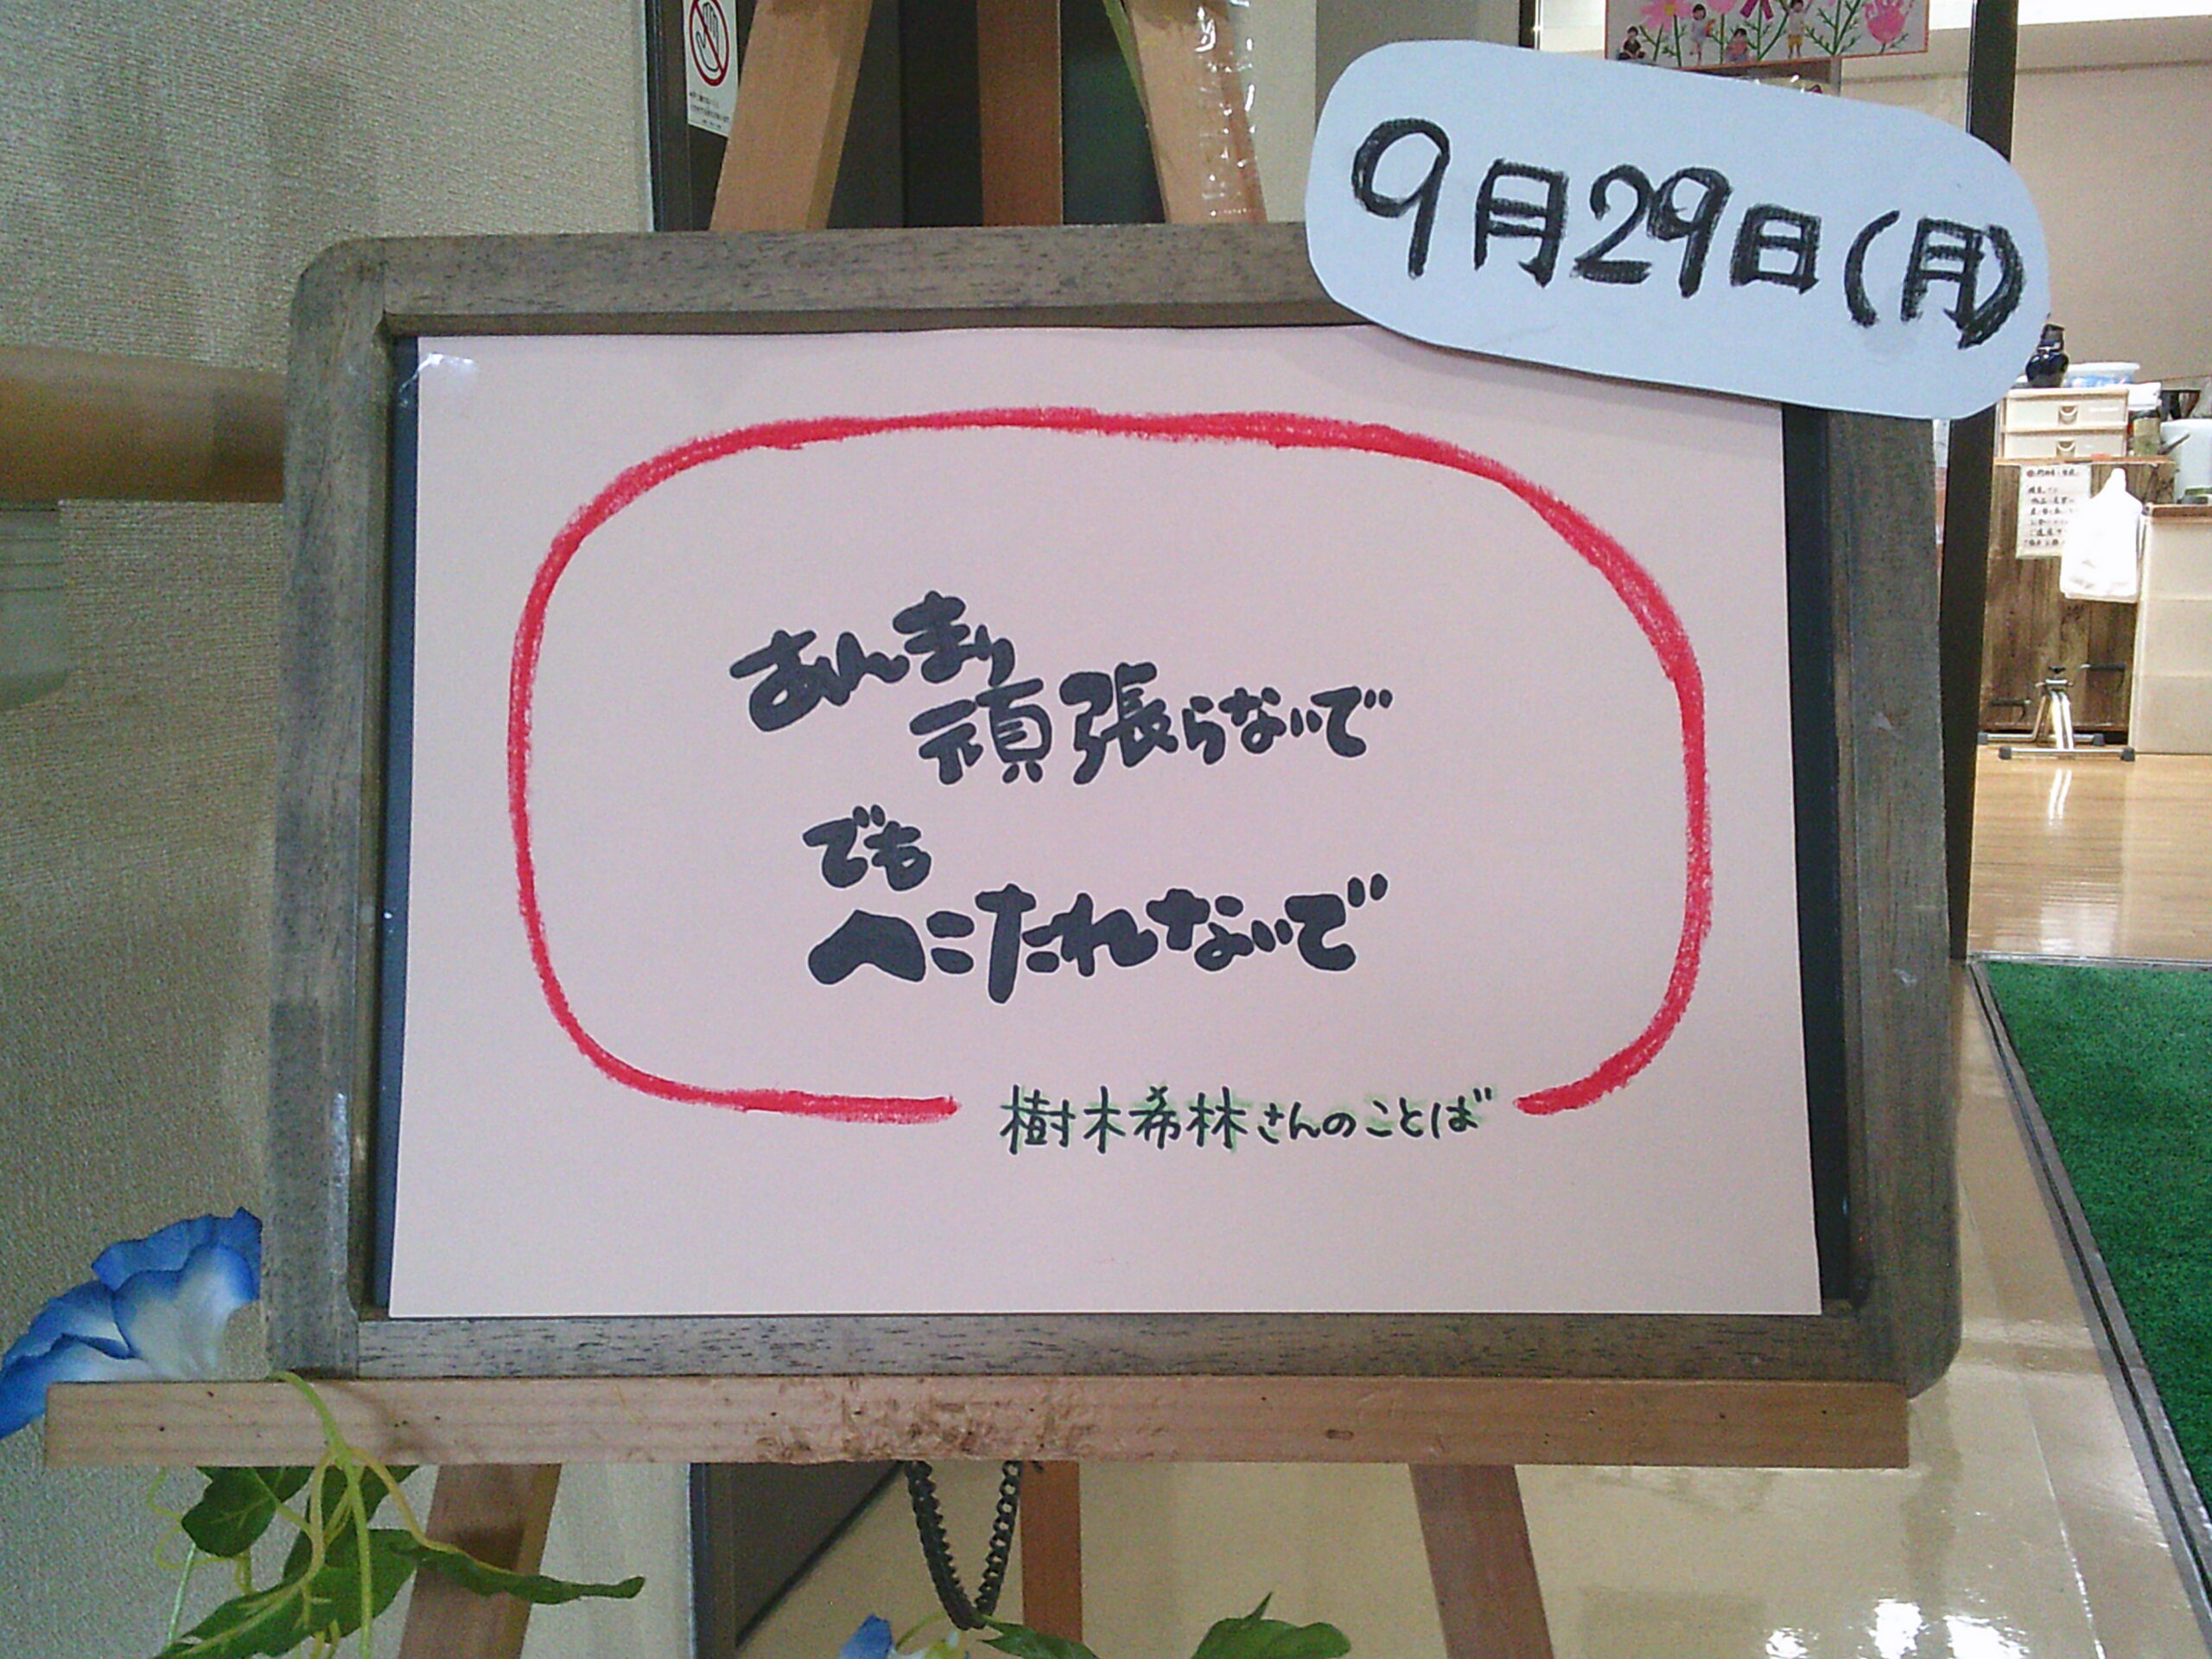 9月29日(月)
あんまり
頑張らないで
でも
へこたれないで
樹木希林さんのことば